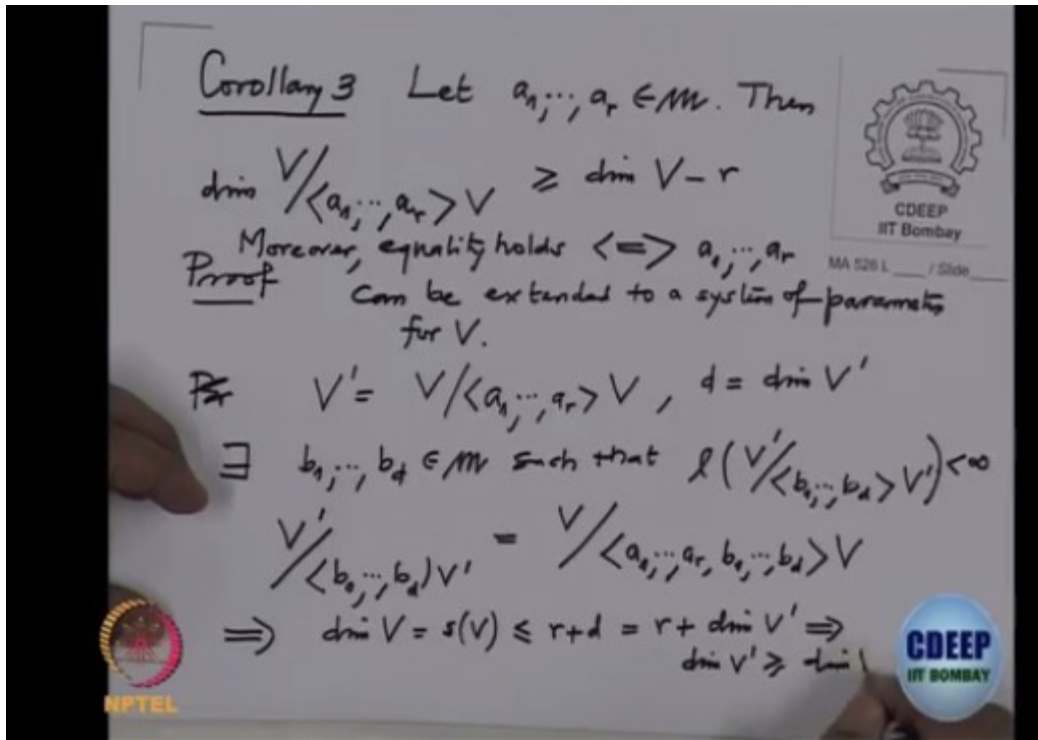 Corollary 3 Let a₁,…,aᵣ ∈ m. Then
dim V/<a₁,…,aᵣ>V ≥ dim V − r
Moreover, equality holds <=> a₁,…,aᵣ
Proof can be extended to a system of parameters
for V.
V' = V/<a₁,…,aᵣ>V, d = dim V'
∃ b₁,…,b_d ∈ m such that ℓ(V'/<b₁,…,b_d>V') < ∞
V'/<b₁,…,b_d)V' = V/<a₁,…,aᵣ, b₁,…,b_d>V
⇒ dim V = s(V) ≤ r+d = r + dim V' ⇒
dim V' ≥ dim
CDEEP
IIT Bombay
MA 526 L ____ / Slide ____
NPTEL
CDEEP
IIT BOMBAY